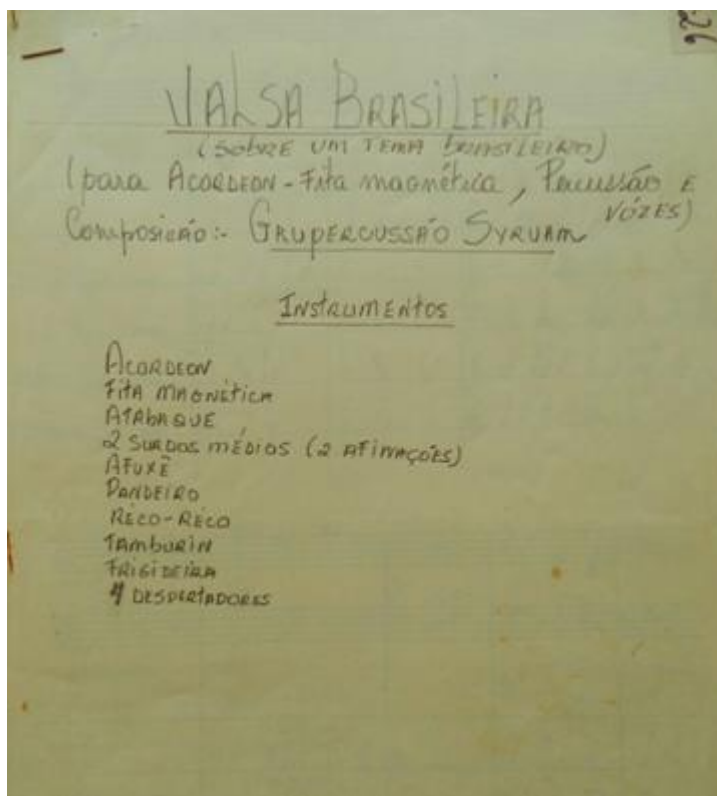 26
VALSA BRASILEIRA
(SOBRE UM TEMA BRASILEIRO)
(para ACORDEON - Fita magnética, Percussão E
VÓZES)
Composição:- GRUPERCUSSÃO SYRUAM
INSTRUMENTOS
ACORDEON
FITA MAGNÉTICA
ATABAQUE
2 SURDOS MÉDIOS (2 AFINAÇÕES)
AFUXÊ
PANDEIRO
RÉCO-RÉCO
TAMBURIN
FRIGIDEIRA
4 DESPERTADORES